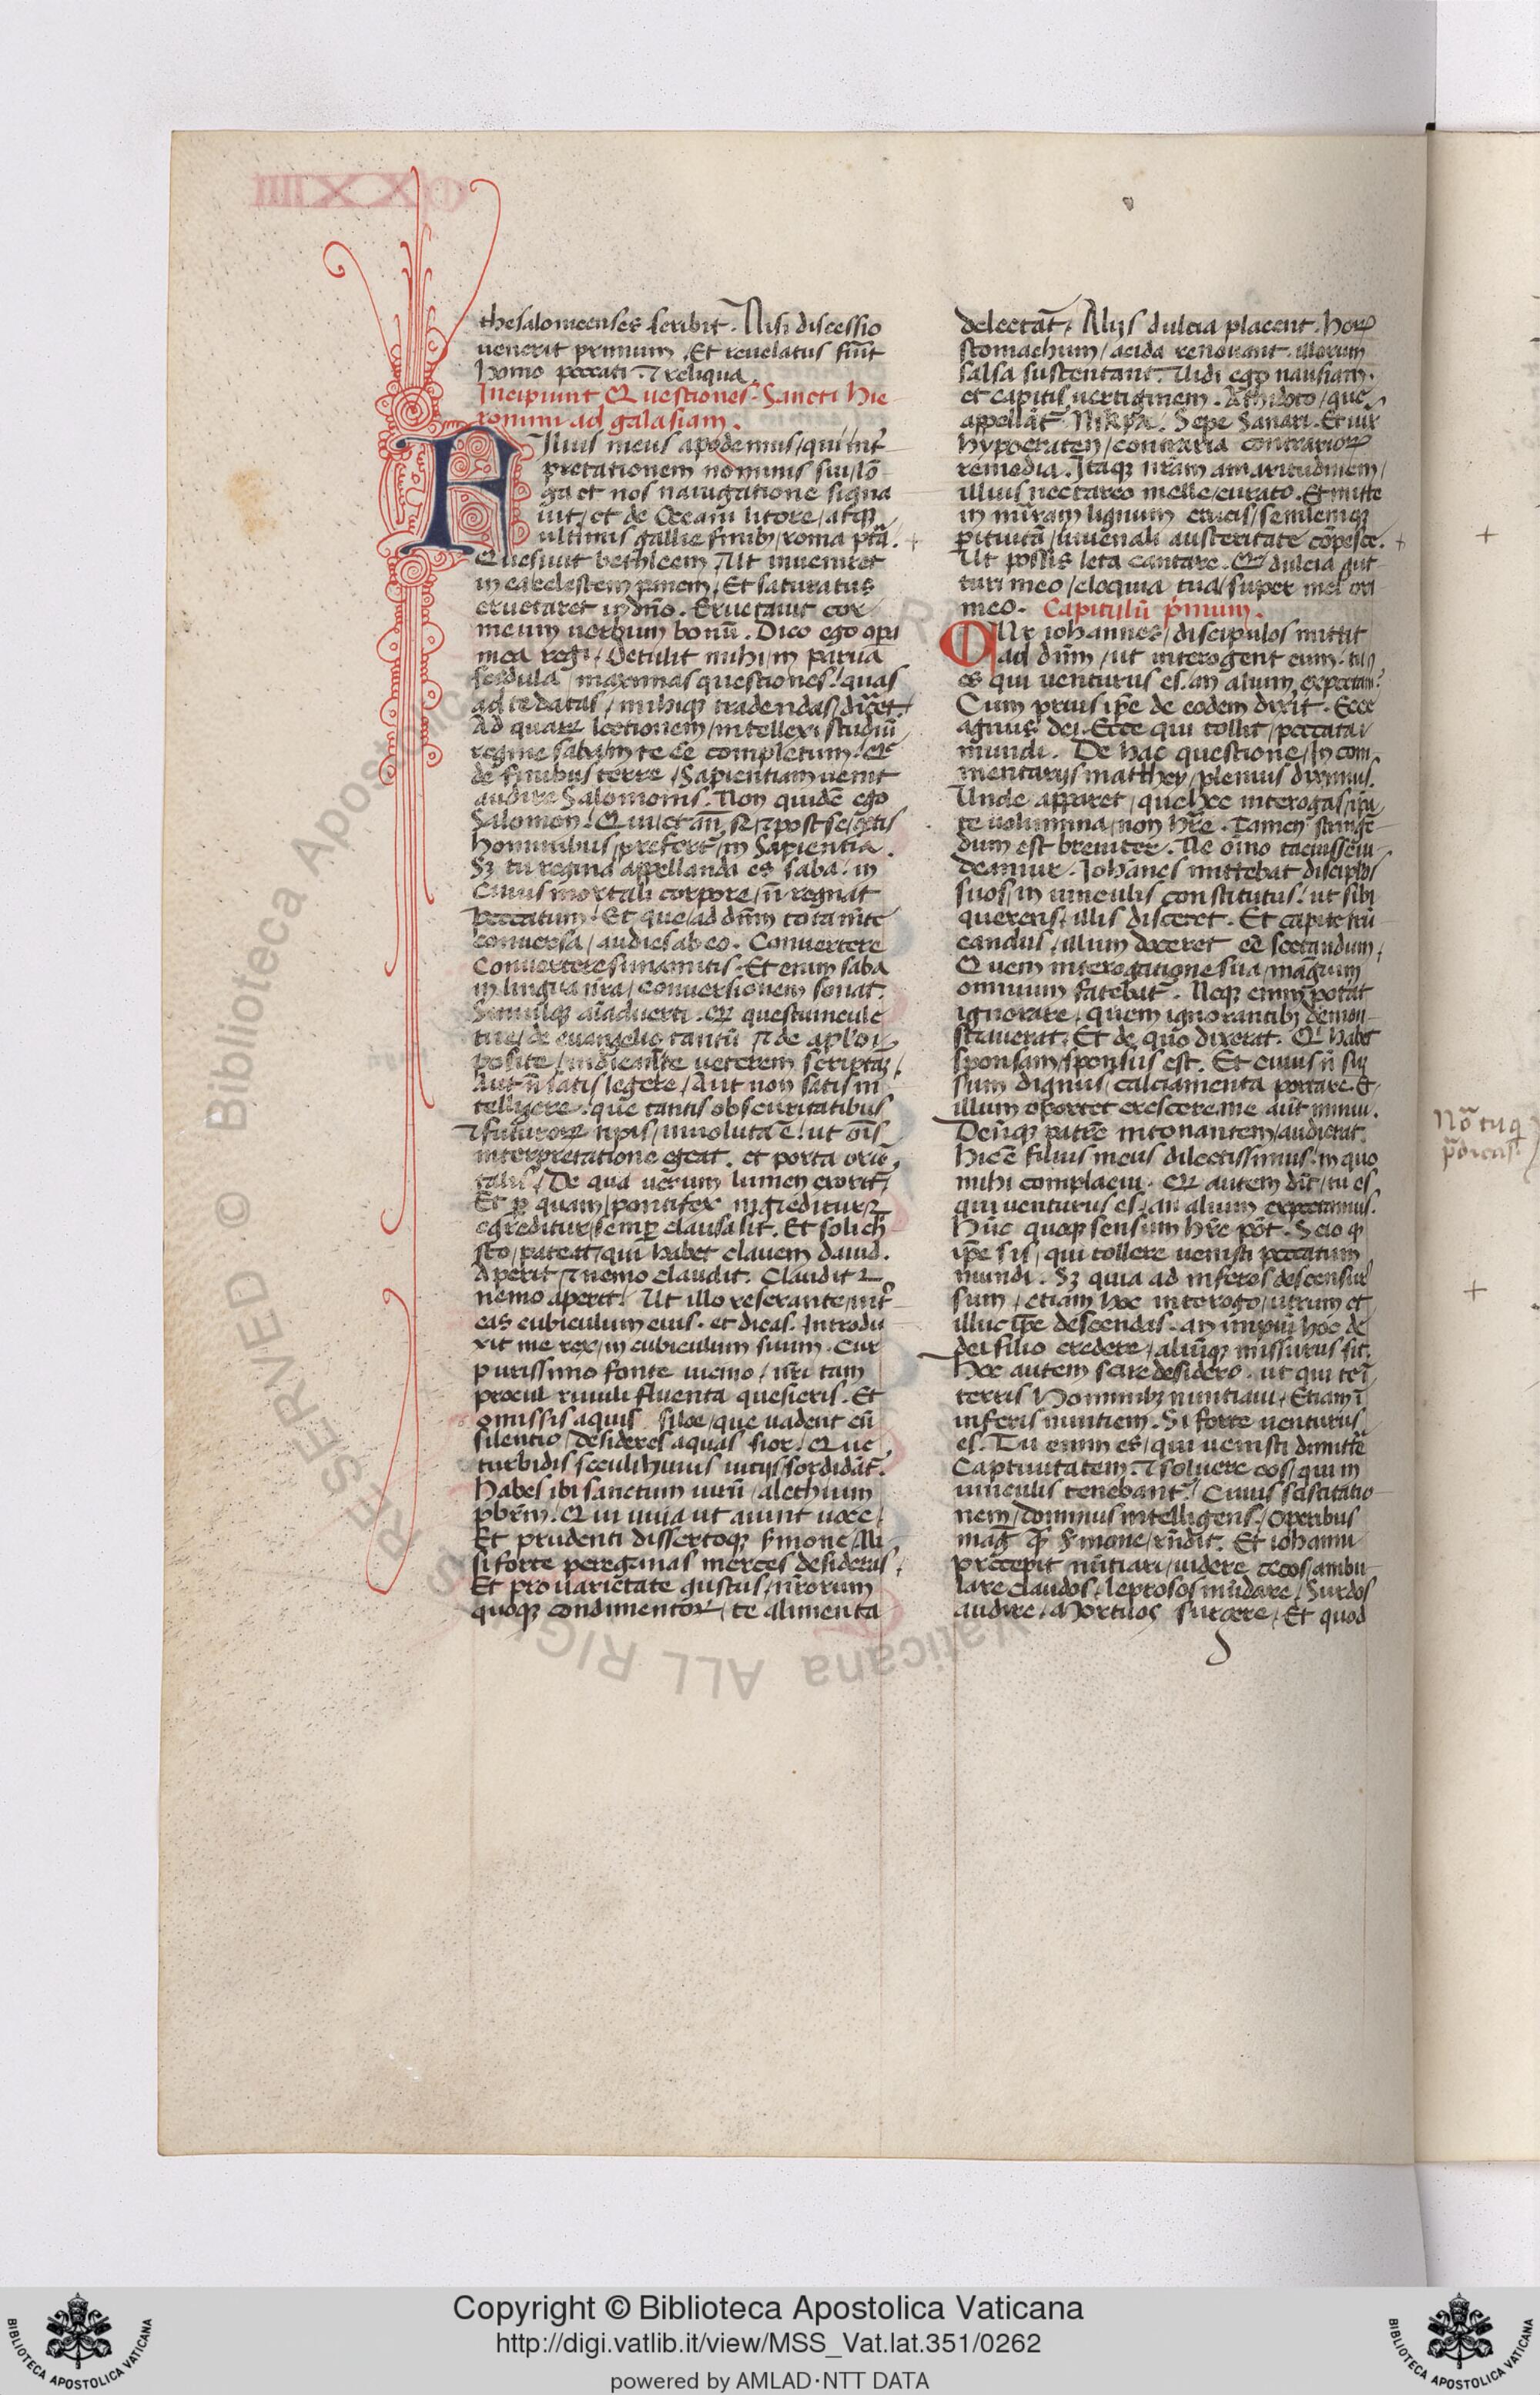 thesalonicenses scribit. Nisi discessio
uenerit primum. Et reuelatus fuit̄
homo peccati. ⁊ reliqua.
Incipiunt Questiones. Sancti Hie
ronimi ad galasiam.
Filius meus apodemius, qui int̄
pretationem nominis sui, lō
ga et nos nauigatione signa
uit, et de Oceani litore, atq;
ultimis gallie finib;, roma pt̄ā.
Quesiuit bethleem. Ut inueniret
in ea celestem panem. Et saturatus
eructaret in dn̄o. Eructauit cor
meum uerbum bonū. Dico ego opa
mea regi. Detulit mihi, in parua
scedula, maximas questiones. quas
ad te datas, mihiq; tradendas, dic̄et.
Ad quarꝝ lectionem, intellexi studiū
regine saba, in te eē completum. Que
de finibus terre, Sapientiam uenit
audire Salomonis. Non quidē ego
Salomon. Qui et an̄ se ⁊ post se, cet̄is
hominibus, prefert̄, in Sapientia.
Sꝫ tu regina appellanda es saba. in
cuius mortali corpore, n̄ regnat
peccatum. Et que ad dn̄m tota mēte
conuersa, audies ab eo. Conuertere
Conuertere sunamitis. Et enim saba
in lingua nr̄a, conuersionem sonat.
Simulq; aīaduerti. qꝫ questiuncule
tue, de euangelio tantū ⁊ de aplo
posite, indicant te ueterem scripturā,
Aut n̄ satis legere, Aut non satis in
telligere. que tantis obscuritatibus
⁊ futurorꝝ tipis, inuoluta ē. ut om̄is
interpretatione egeat. et porta oriē
talis, De qua uerum lumen exorit̄,
Et ꝑ quam, pontifex ingreditur ⁊
egreditur, semꝑ clausa sit. Et soli ch̄
sto, pateat, qui habet clauem dauid.
Aperit, ⁊ nemo claudit. Claudit ⁊
nemo aperit. Ut illo reserante, int̄
eas cubiculum eius. et dicas. Introdu
xit me rex, in cubiculum suum. Cur
purissimo fonte uicino, nr̄i tam
procul riuuli fluenta quesieris. Et
omissis aquis siloe, que uadent cū
silentio, desideres aquas sior. Que
turbidis seculi huius uitijs, sordidāt̄.
Habes ibi sanctum uirū, alethium
pb̄rm. Qui uiua ut aiunt uoce,
Et prudenti dissertoq; sermone,
si forte peregrinas merces desideras,
Et pro uarietate gustus, nr̄orum
quoq; condimentorꝝ, te alimenta
delectāt. Alijs dulcia placent. horꝝ
stomachum, acida renouant. illorum
salsa sustentant. Uidi ego nausiam.
et capitis uertiginem. Athidoto, que
appellat̄ Sepe Sanari. Et iux
hypocraten, contraria contrariorꝝ
remedia. Itaq; nr̄am amaritudinem,
illius nectareo melle, curato. Et mitte
in mirram lignum crucis, senilemq;
pituitā, iuuenali austeritate cōpesce.
Ut possis leta cantare. Qm̄ dulcia gut
turi meo, eloquia tua, super mel ori
meo. Capitulū pmum.
Cur iohannes, discipulos mittit
ad dn̄m, ut interogent eum. tu
es qui venturus es. an alium expectam?
Cum prius ip̄e de eodem dixit. Ecce
agnus dei. Ecce qui tollit, peccata
mundi. De hac questione, In com
mentarijs matthey, plenius diximus.
Unde apparet, que hec interogas, ip̄a
te uolumina, non hr̄e. Tamen stringē
dum est breuiter. Ne oīno tacuisse ui
deamur. Johanes mittebat disciplos
suos, in uinculis constitutus. ut sibi
querens, illis disceret. Et capite trū
candus, illum doceret eē sectandum,
Quem interogatione sua, magrum
omnium fatebat̄. Neq; enim potat̄
ignorare, quem ignorantib; demon
strauerat. Et de quo dixerat. Qi habet
sponsam, sponsus est. Et cuius n̄ sū
sum dignus, calciamenta portare. Et
illum oportet crescere. me aūt minui.
Deniq; patrē intonantem, audierat.
Hic ē filius meus dilectissimus. in quo
mihi complacui. Qꝫ autem dic̄t, tu es
qui venturus es, an alium expectamus.
Hūc quoq; sensum hr̄e pōt. Scio qꝫ
ip̄e sis, qui tollere uenisti peccatum
mundi. Sꝫ quia ad inferos descensur̄
sum, etiam hoc interogo, utrum et
illuc ip̄e descendas. an impiū hoc de
dei filio credere, aliūq; missurus sit.
Hec autem scire desidero. ut qui te ī
terris hominib; nuntiaui, Etiam ī
inferis nuntiem. Si forte uenturus
es. Tu enim es, qui uenisti dimittē
Captiuitatem. ⁊ soluere eos, qui in
uinculis tenebant̄. Cuius sciscitatio
nem, dominus intelligens, Operibus
mag̃ sermone, rn̄dit. Et iohanni
precepit nūtiari, uidere cecos, ambu
lare claudos, leprosos mūdare, Surdos
audire, Mortuos surgere, Et quod
Copyright © Biblioteca Apostolica Vaticana
http://digi.vatlib.it/view/MSS_Vat.lat.351/0262
powered by AMLAD·NTT DATA
BIBLIOTECA APOSTOLICA VATICANA
BIBLIOTECA APOSTOLICA VATICANA